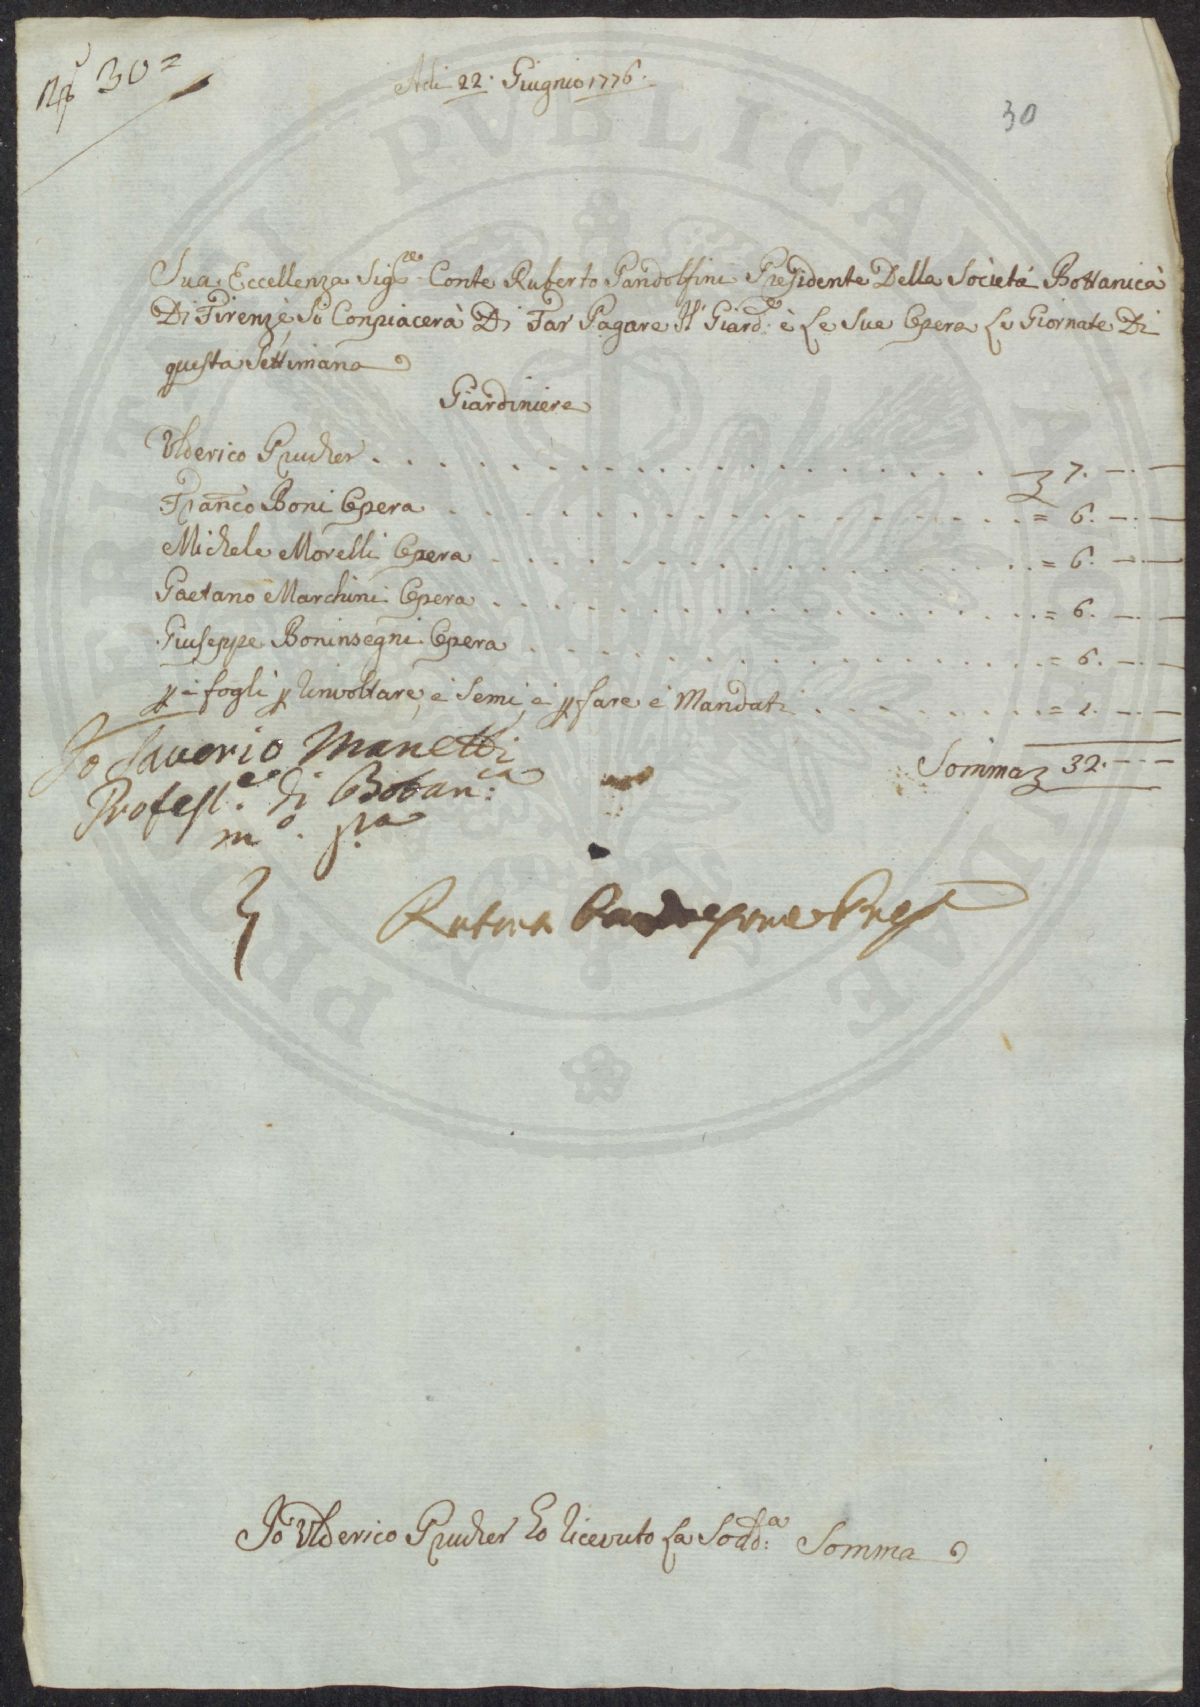 N° 30=
Adi 22. Giugnio 1776.
30
Sua Eccellenza Sig.re Conte Ruberto Pandolfini Presidente Della Società Bottanica
Di Firenze Si Conpiacerà Di Far Pagare Il Giard.re è Le Sue Opera Le Giornate Di
questa Settimana
Giardiniere
Ulderico Prucher . . . . . . . . . . 7. — . —
Fran.co Boni Opera . . . . . . . . . . = 6. — . —
Michele Morelli Opera . . . . . . . . . . = 6. — . —
Gaetano Marchini Opera . . . . . . . . . . = 6. — . —
Giuseppe Boninsegni Opera . . . . . . . . . . = 6. — . —
p i fogli p Rinvoltare, e Semi, e p fare e Mandati . . . . . . . . = 1. — . —
Somma 32. — . —
Io Saverio Manetti
Profess.re di Botan.ca
m.o p.a
Ruberto Pandolfini Pres
Io Ulderico Prucher ho ricevuto La Sodd.a Somma
PERIALIS
PVBLICAE AVCTORITATE